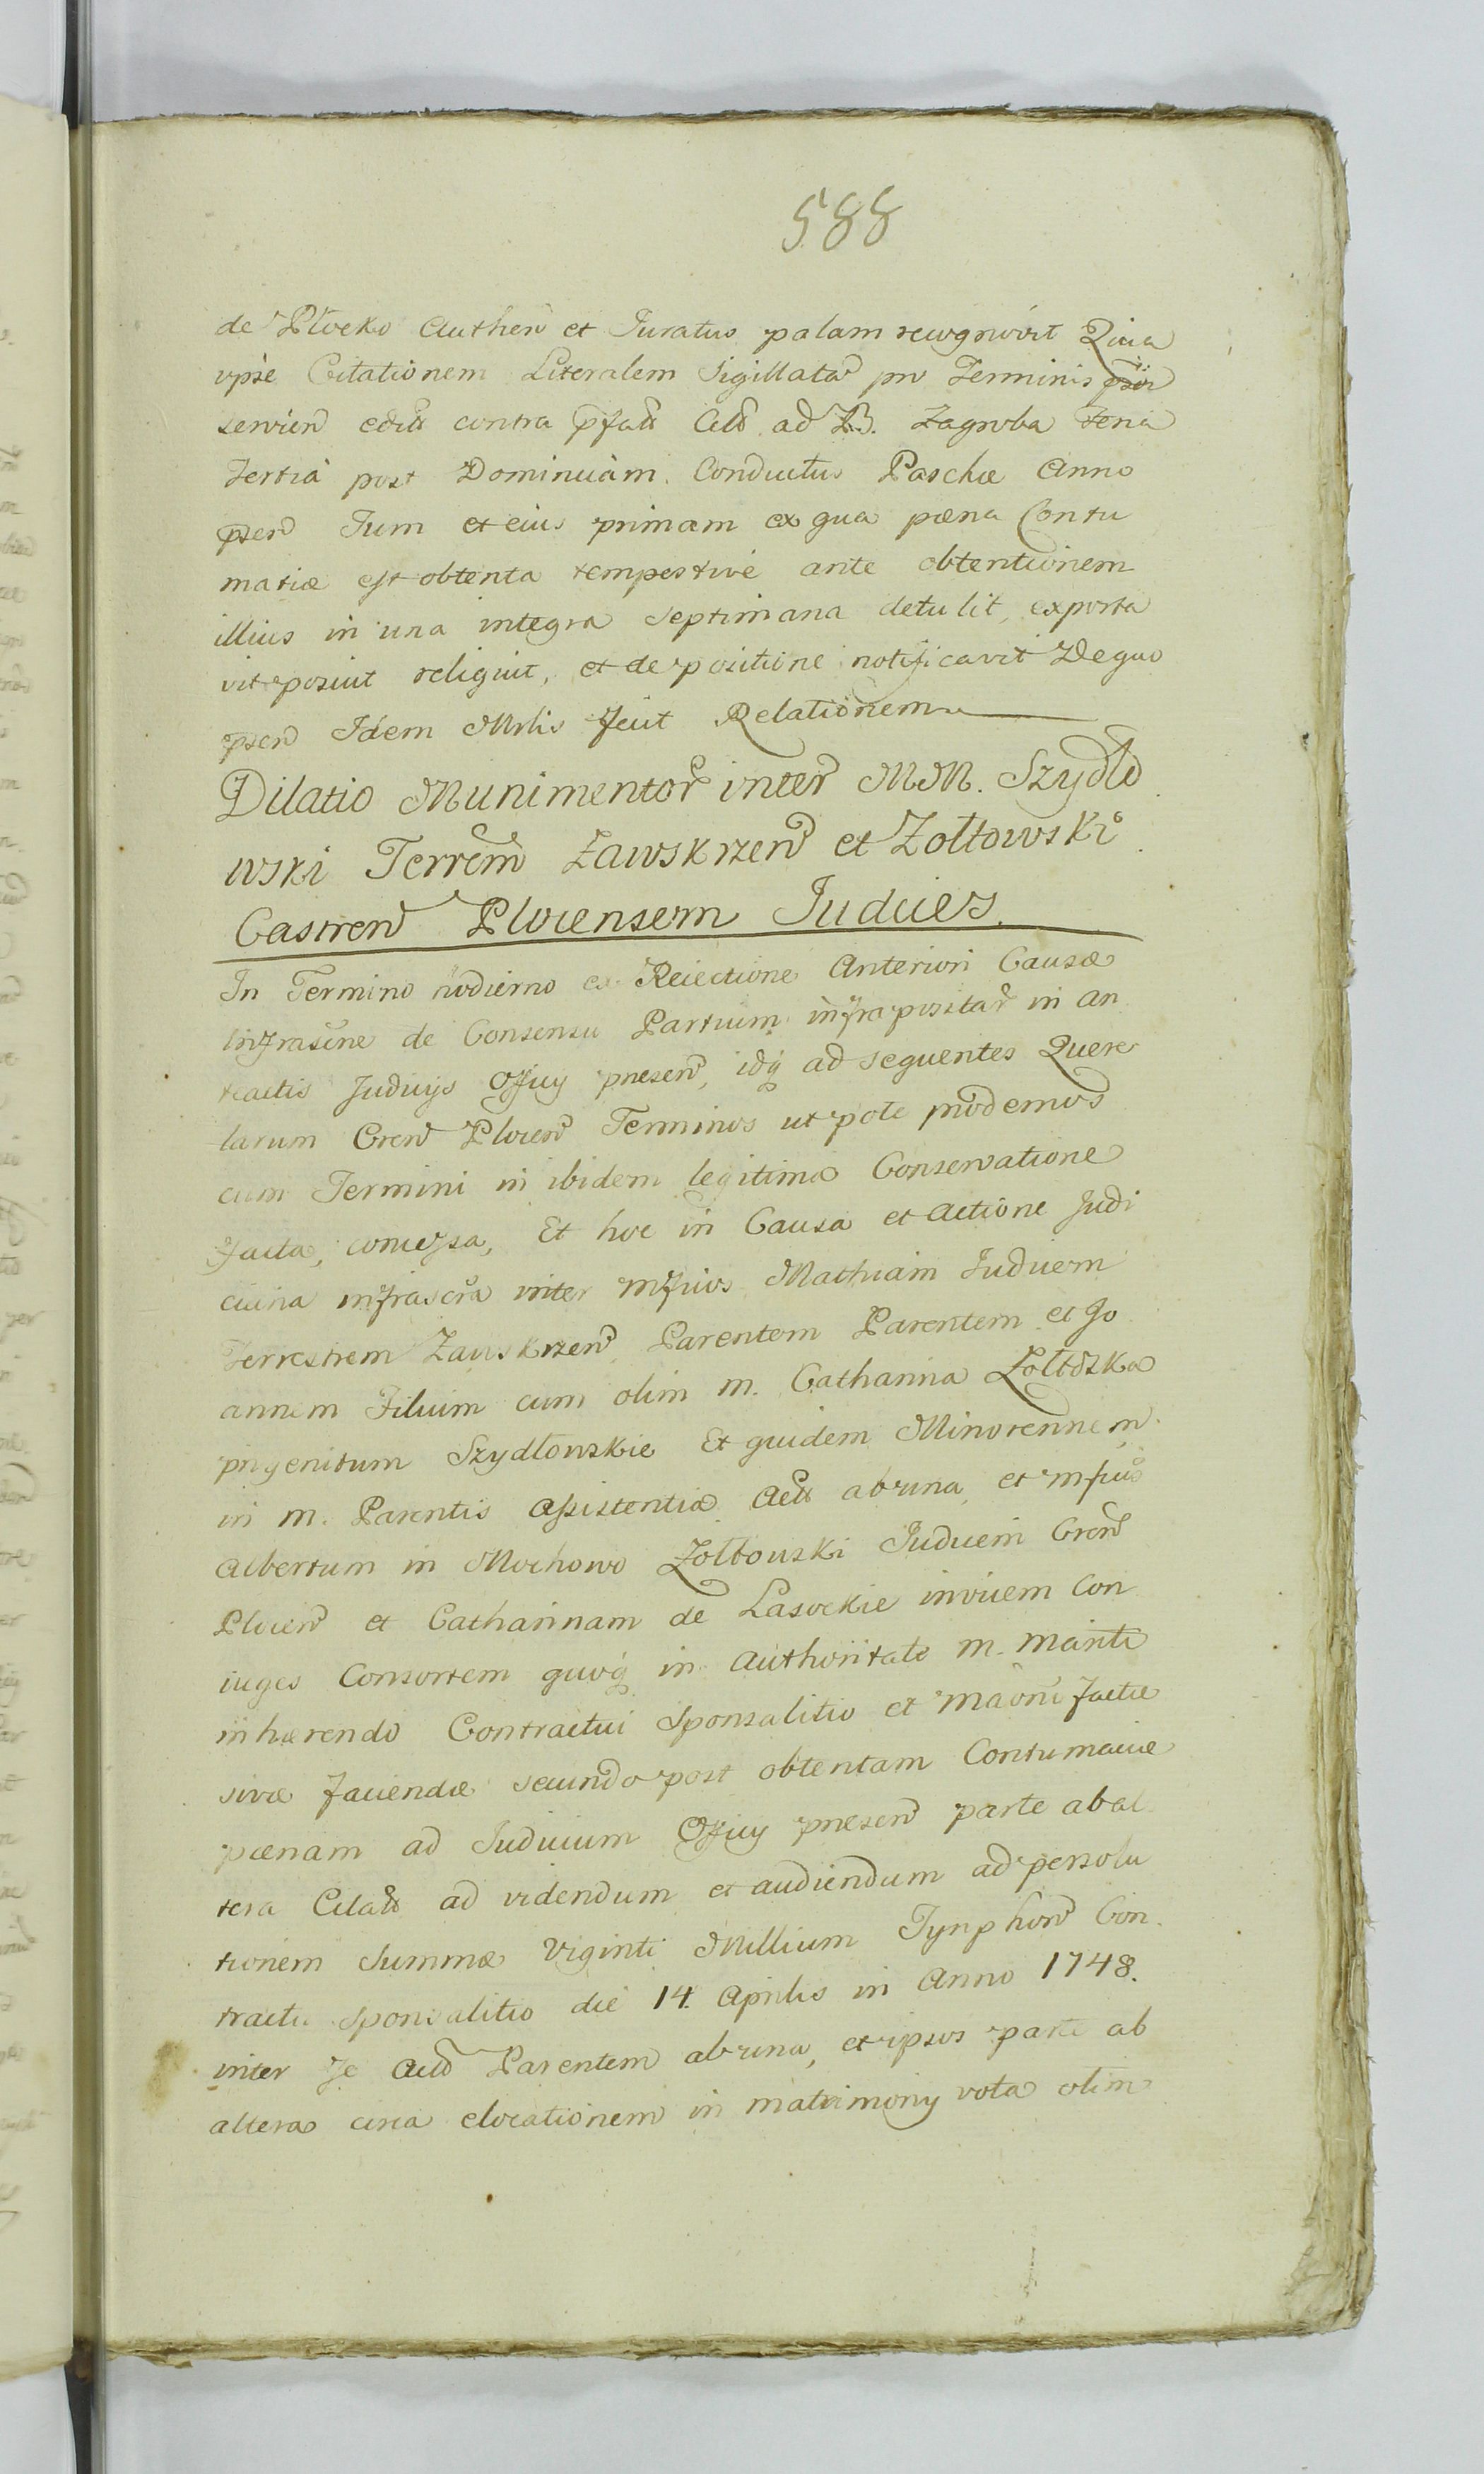 588
de Plocko Authen et Juratus palam recognovit Quia
ipse Citationem Literalem Sigillatā pro Terminis
servien edita contra Act ad B. Zagroba Feria
Tertia post Dominicam Conductus Paschæ Anno
præsen Tum et eius primam ex qua pæna Contu
maciæ est obtenta tempestive ante obtentionem
illius in una integra Septimana detulit, exporta
vit posuit reliquit, et de positione notificavit De quo
præsen Idem Mrlis fecit Relationem
Dilatio Munimentor inter M.M. Szydło
wski Terrem Zawskrzen et Zołtowski
Castren Plocensem Judices.
In Termino hodierno ex Reiectione Anteriori Causæ
infrascne de Consensu Partium infrapositar in an
teactis Judicijs Officij præsen, idq ad sequentes Quere
larum Cren Plocen Terminos ut pote
cum Termini in ibidem legitima Conservatione
facta, concessa, Et hoc in Causa et actione Judi
ciaria infrascra inter mfcos Mathiam Judicem
Terrestrem Zawskrzen Parentem Parentem et Jo
annem Filium cum olim m. Catharina Zołtoska
progenitum Szydłowskie Et quidem Minorennem
in m. Parentis assistentia Act ab una, et mfcus
Albertum in Mochowo Zołtowski Judicem Cren
Plocen et Catharinam de Lasockie invicem Con
iuges Consortem quoq in authoritate m. Mariti
inhærendo Contractui Sponsalitio et factæ
sive faciendæ secundo post obtentam Contumaciæ
pænam ad Judicium Officij præsen parte ab al
tera Citat ad videndum et audiendum ad persolu
tionem Summæ Viginti Millium Tynphon Con
tractu Sponsalitio die 14. Aprilis in Anno 1748.
inter se Act Parentem ab una, et ipsos parte ab
altera circa elocationem in matrimonij vota olim